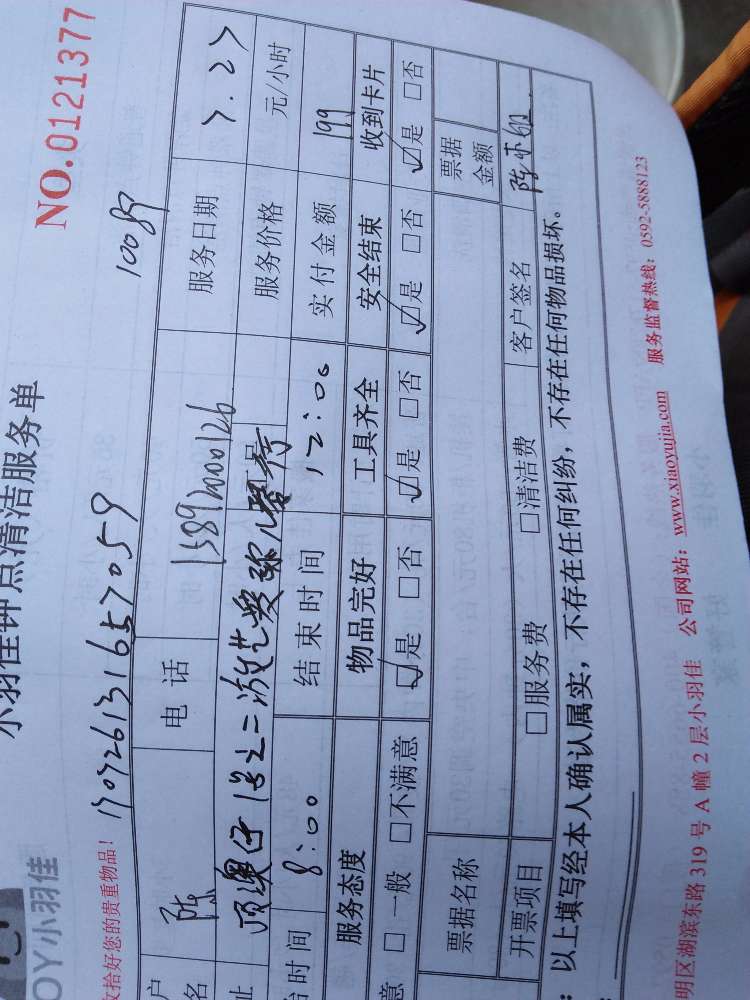 小羽佳钟点清洁服务单
NO.0121377
OY小羽佳
收拾好您的贵重物品!
10089
户名 陈 电话 13892000126 服务日期 7.27
址 服务价格 元/小时
始时间 8:00 结束时间 12:00 实付金额 199
服务态度 物品完好 工具齐全 安全结束 收到卡片
意 □一般 □不满意 ☑是 □否 ☑是 □否 ☑是 □否 ☑是 □否
票据名称 票据金额
开票项目 □服务费 □清洁费 客户签名
: 以上填写经本人确认属实,不存在任何纠纷,不存在任何物品损坏。
明区湖滨东路 319 号 A 幢 2 层小羽佳 公司网站: www.xiaoyujia.com 服务监督热线: 0592-5888123